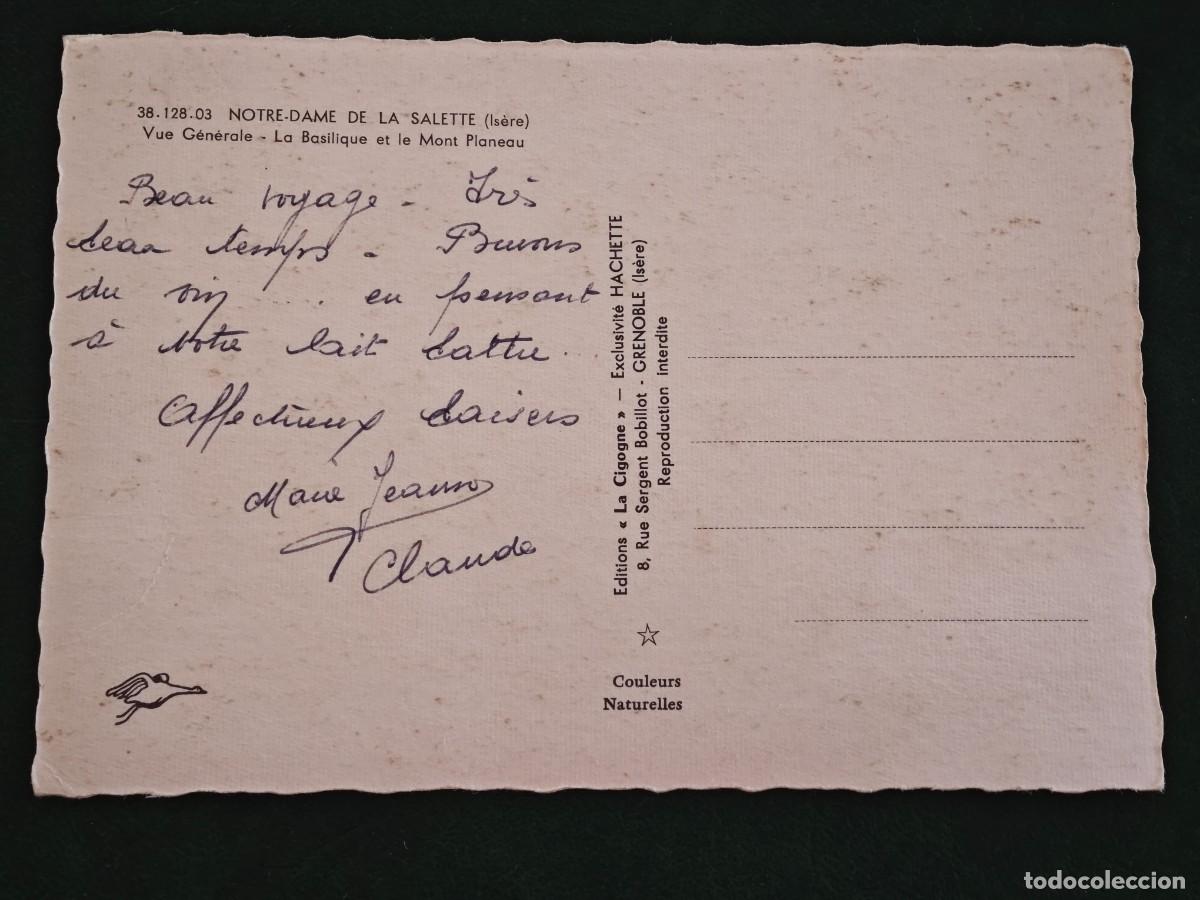 38.128.03 NOTRE-DAME DE LA SALETTE (Isère)
Vue Générale - La Basilique et le Mont Planeau
Beau voyage - Très
beau temps - Buvons
du vin .... en pensant
à votre lait battu..
Affectueux baisers
Marie Jeanne
Claude
Editions « La Cigogne » — Exclusivité HACHETTE
8, Rue Sergent Bobillot - GRENOBLE (Isère)
Reproduction interdite
Couleurs
Naturelles
todocoleccion